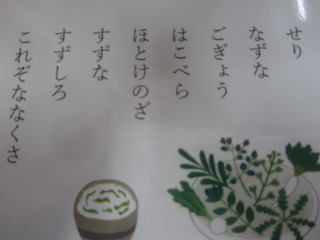 せり
なずな
ごぎょう
はこべら
ほとけのざ
すずな
すずしろ
これぞななくさ